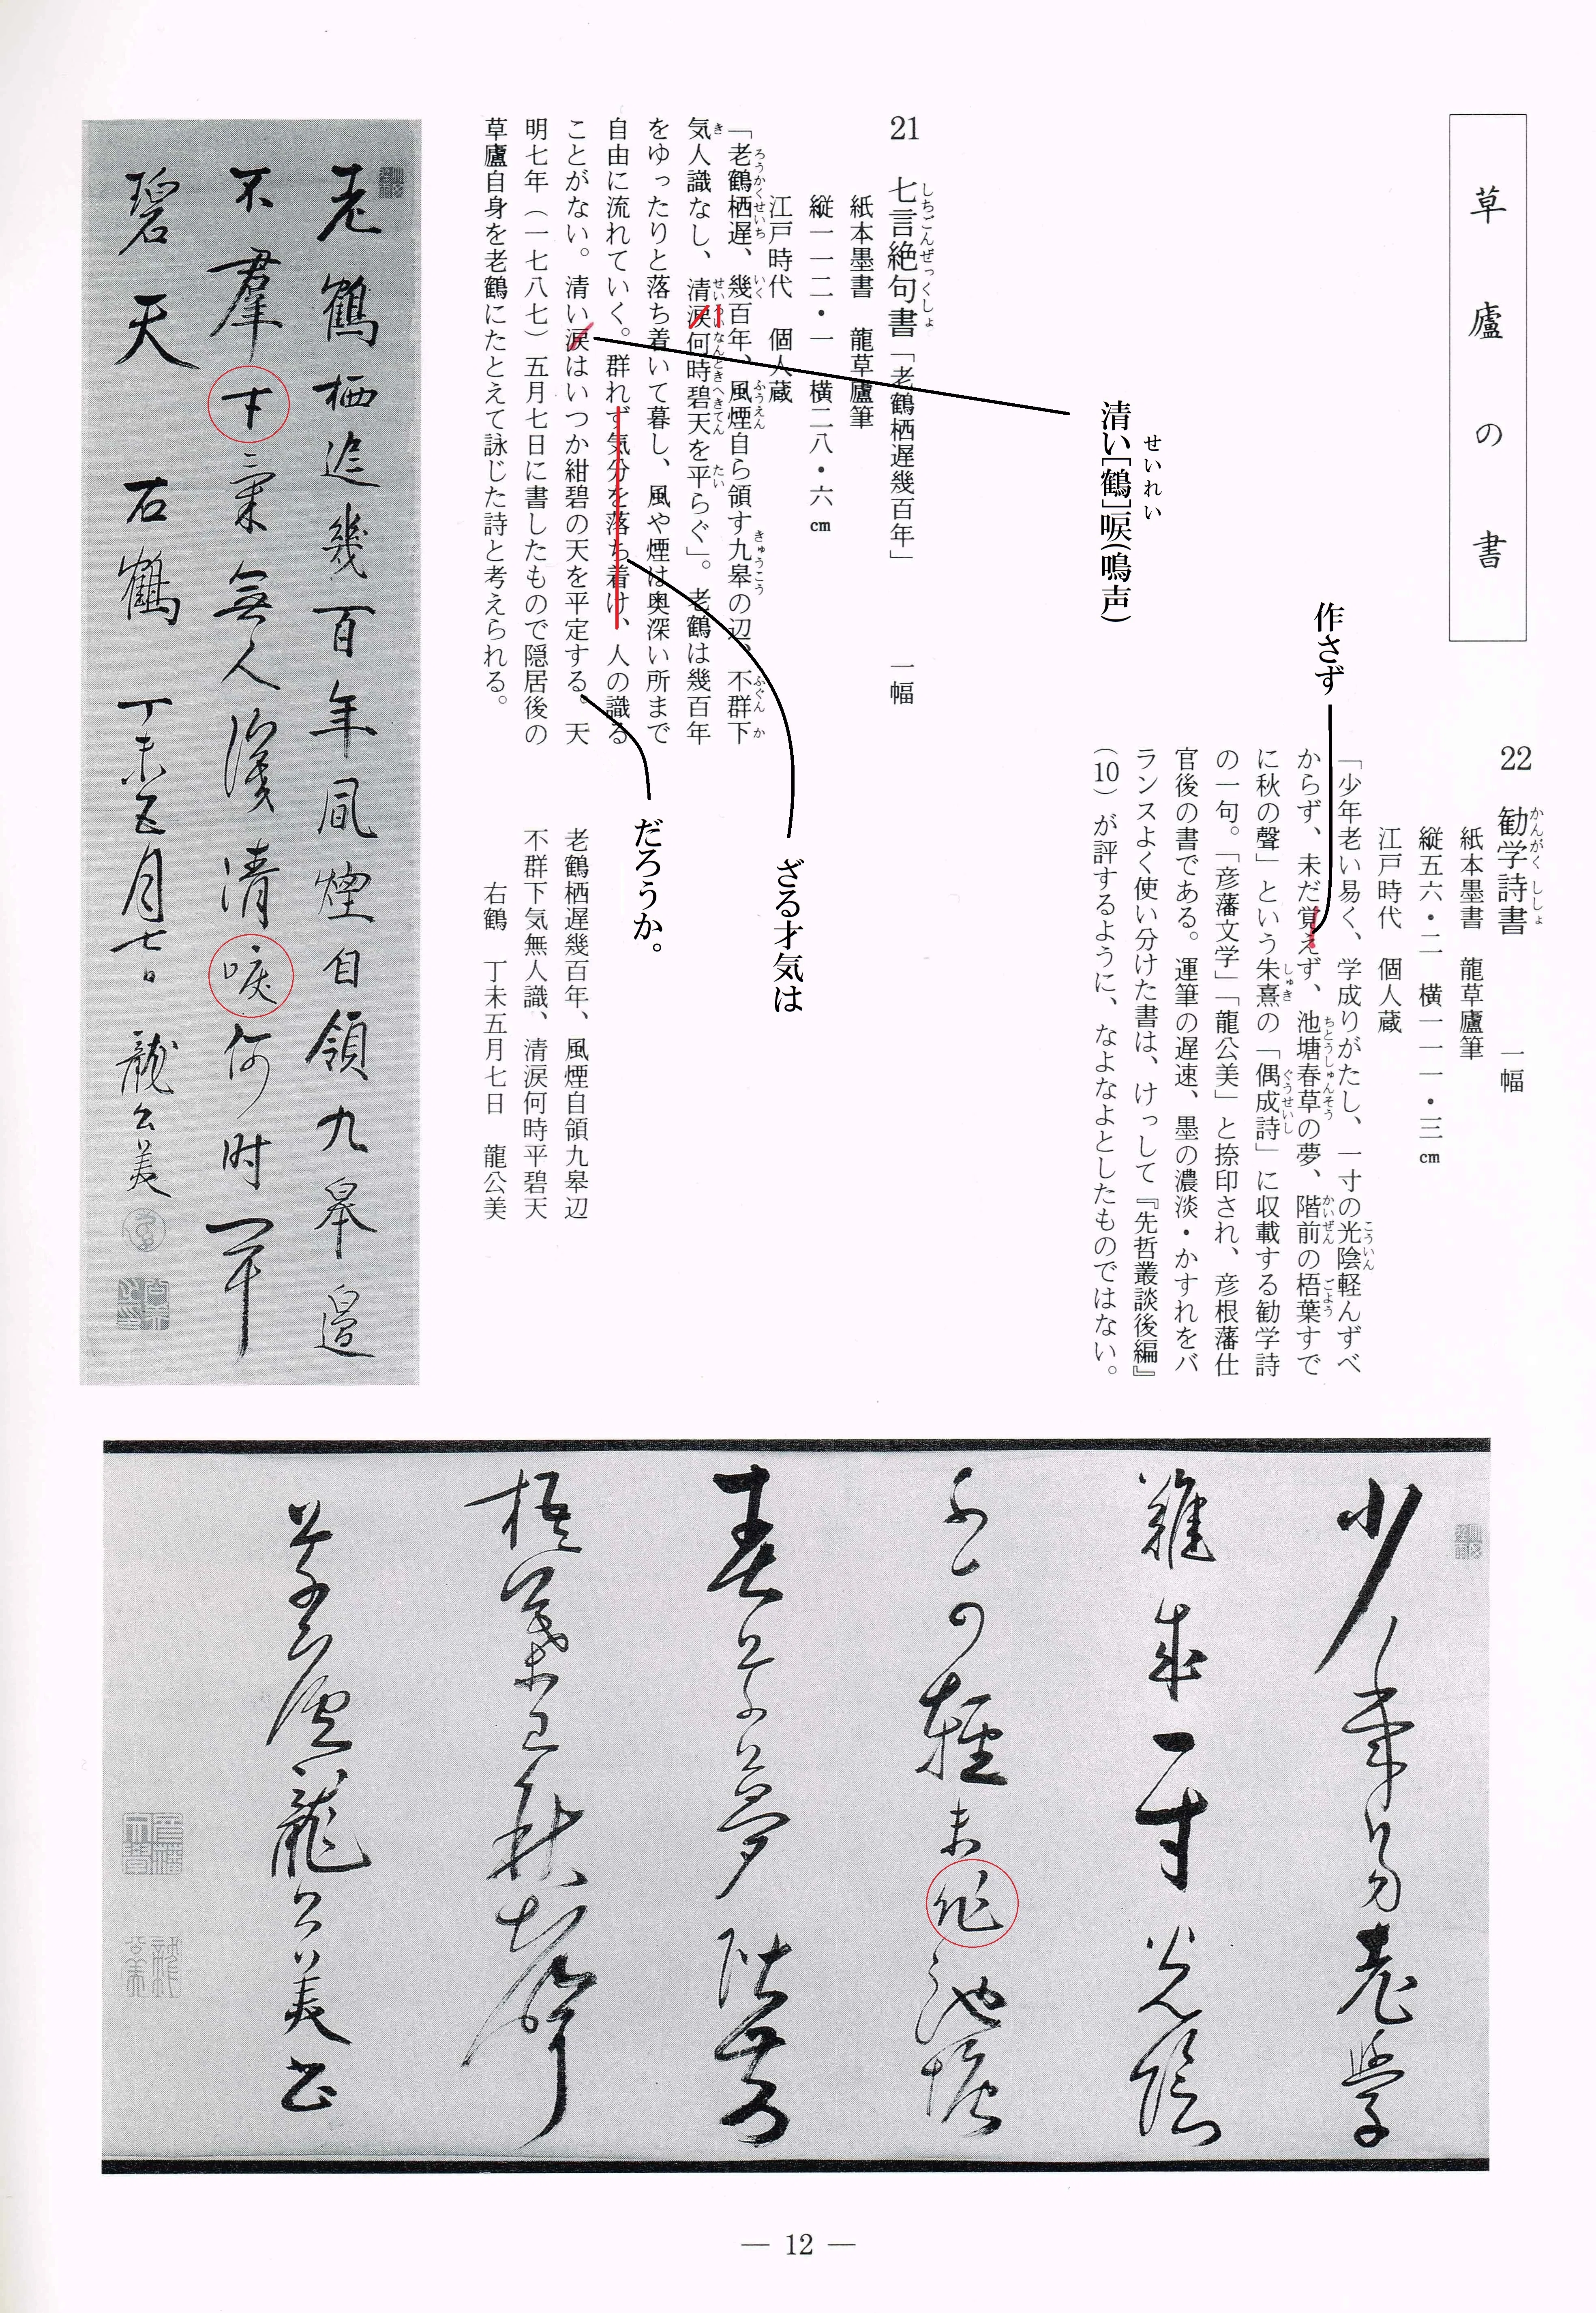 草廬の書
22 勧学詩書 一幅
かんがくししょ
紙本墨書 龍草廬筆
縦五六・二 横一一一・三㎝
江戸時代 個人蔵
「少年老い易く、学成りがたし、一寸の光陰軽んずべ
こういん
からず、未だ覚えず、池塘春草の夢、階前の梧葉すで
ちとうしゅんそう かいぜん ごよう
に秋の聲」という朱熹の「偶成詩」に収載する勧学詩
しゅき ぐうせいし
の一句。「彦藩文学」「龍公美」と捺印され、彦根藩仕
官後の書である。運筆の遅速、墨の濃淡・かすれをバ
ランスよく使い分けた書は、けっして『先哲叢談後編』
（10）が評するように、なよなよとしたものではない。
作さず
清い[鶴]唳(鳴声)
せいれい
21 七言絶句書「老鶴栖遅幾百年」 一幅
しちごんぜっくしょ
紙本墨書 龍草廬筆
縦一一二・一 横二八・六㎝
江戸時代 個人蔵
「老鶴栖遅、幾百年、風煙自ら領す九皋の辺、不群下
ろうかくせいち いく ふうえん きゅうこう ふぐんか
気人識なし、清涙何時碧天を平らぐ」。老鶴は幾百年
き せいるいなんときへきてん たい
をゆったりと落ち着いて暮し、風や煙は奥深い所まで
自由に流れていく。群れず気分を落ち着け、人の識る
ことがない。清い涙はいつか紺碧の天を平定する。天
明七年（一七八七）五月七日に書したもので隠居後の
草廬自身を老鶴にたとえて詠じた詩と考えられる。
ざる才気は
だろうか。
老鶴栖遅幾百年、風煙自領九皋辺
不群下気無人識、清涙何時平碧天
右鶴 丁未五月七日 龍公美
老鶴栖遅幾百年風煙自領九皋邉
不羣才氣無人識清唳何时平
碧天 右鶴 丁未五月七日 龍公美
少年易老學
難成一寸光陰
不可輕未作池塘
春草夢階前
梧葉已秋聲
草廬龍公美書
— 12 —